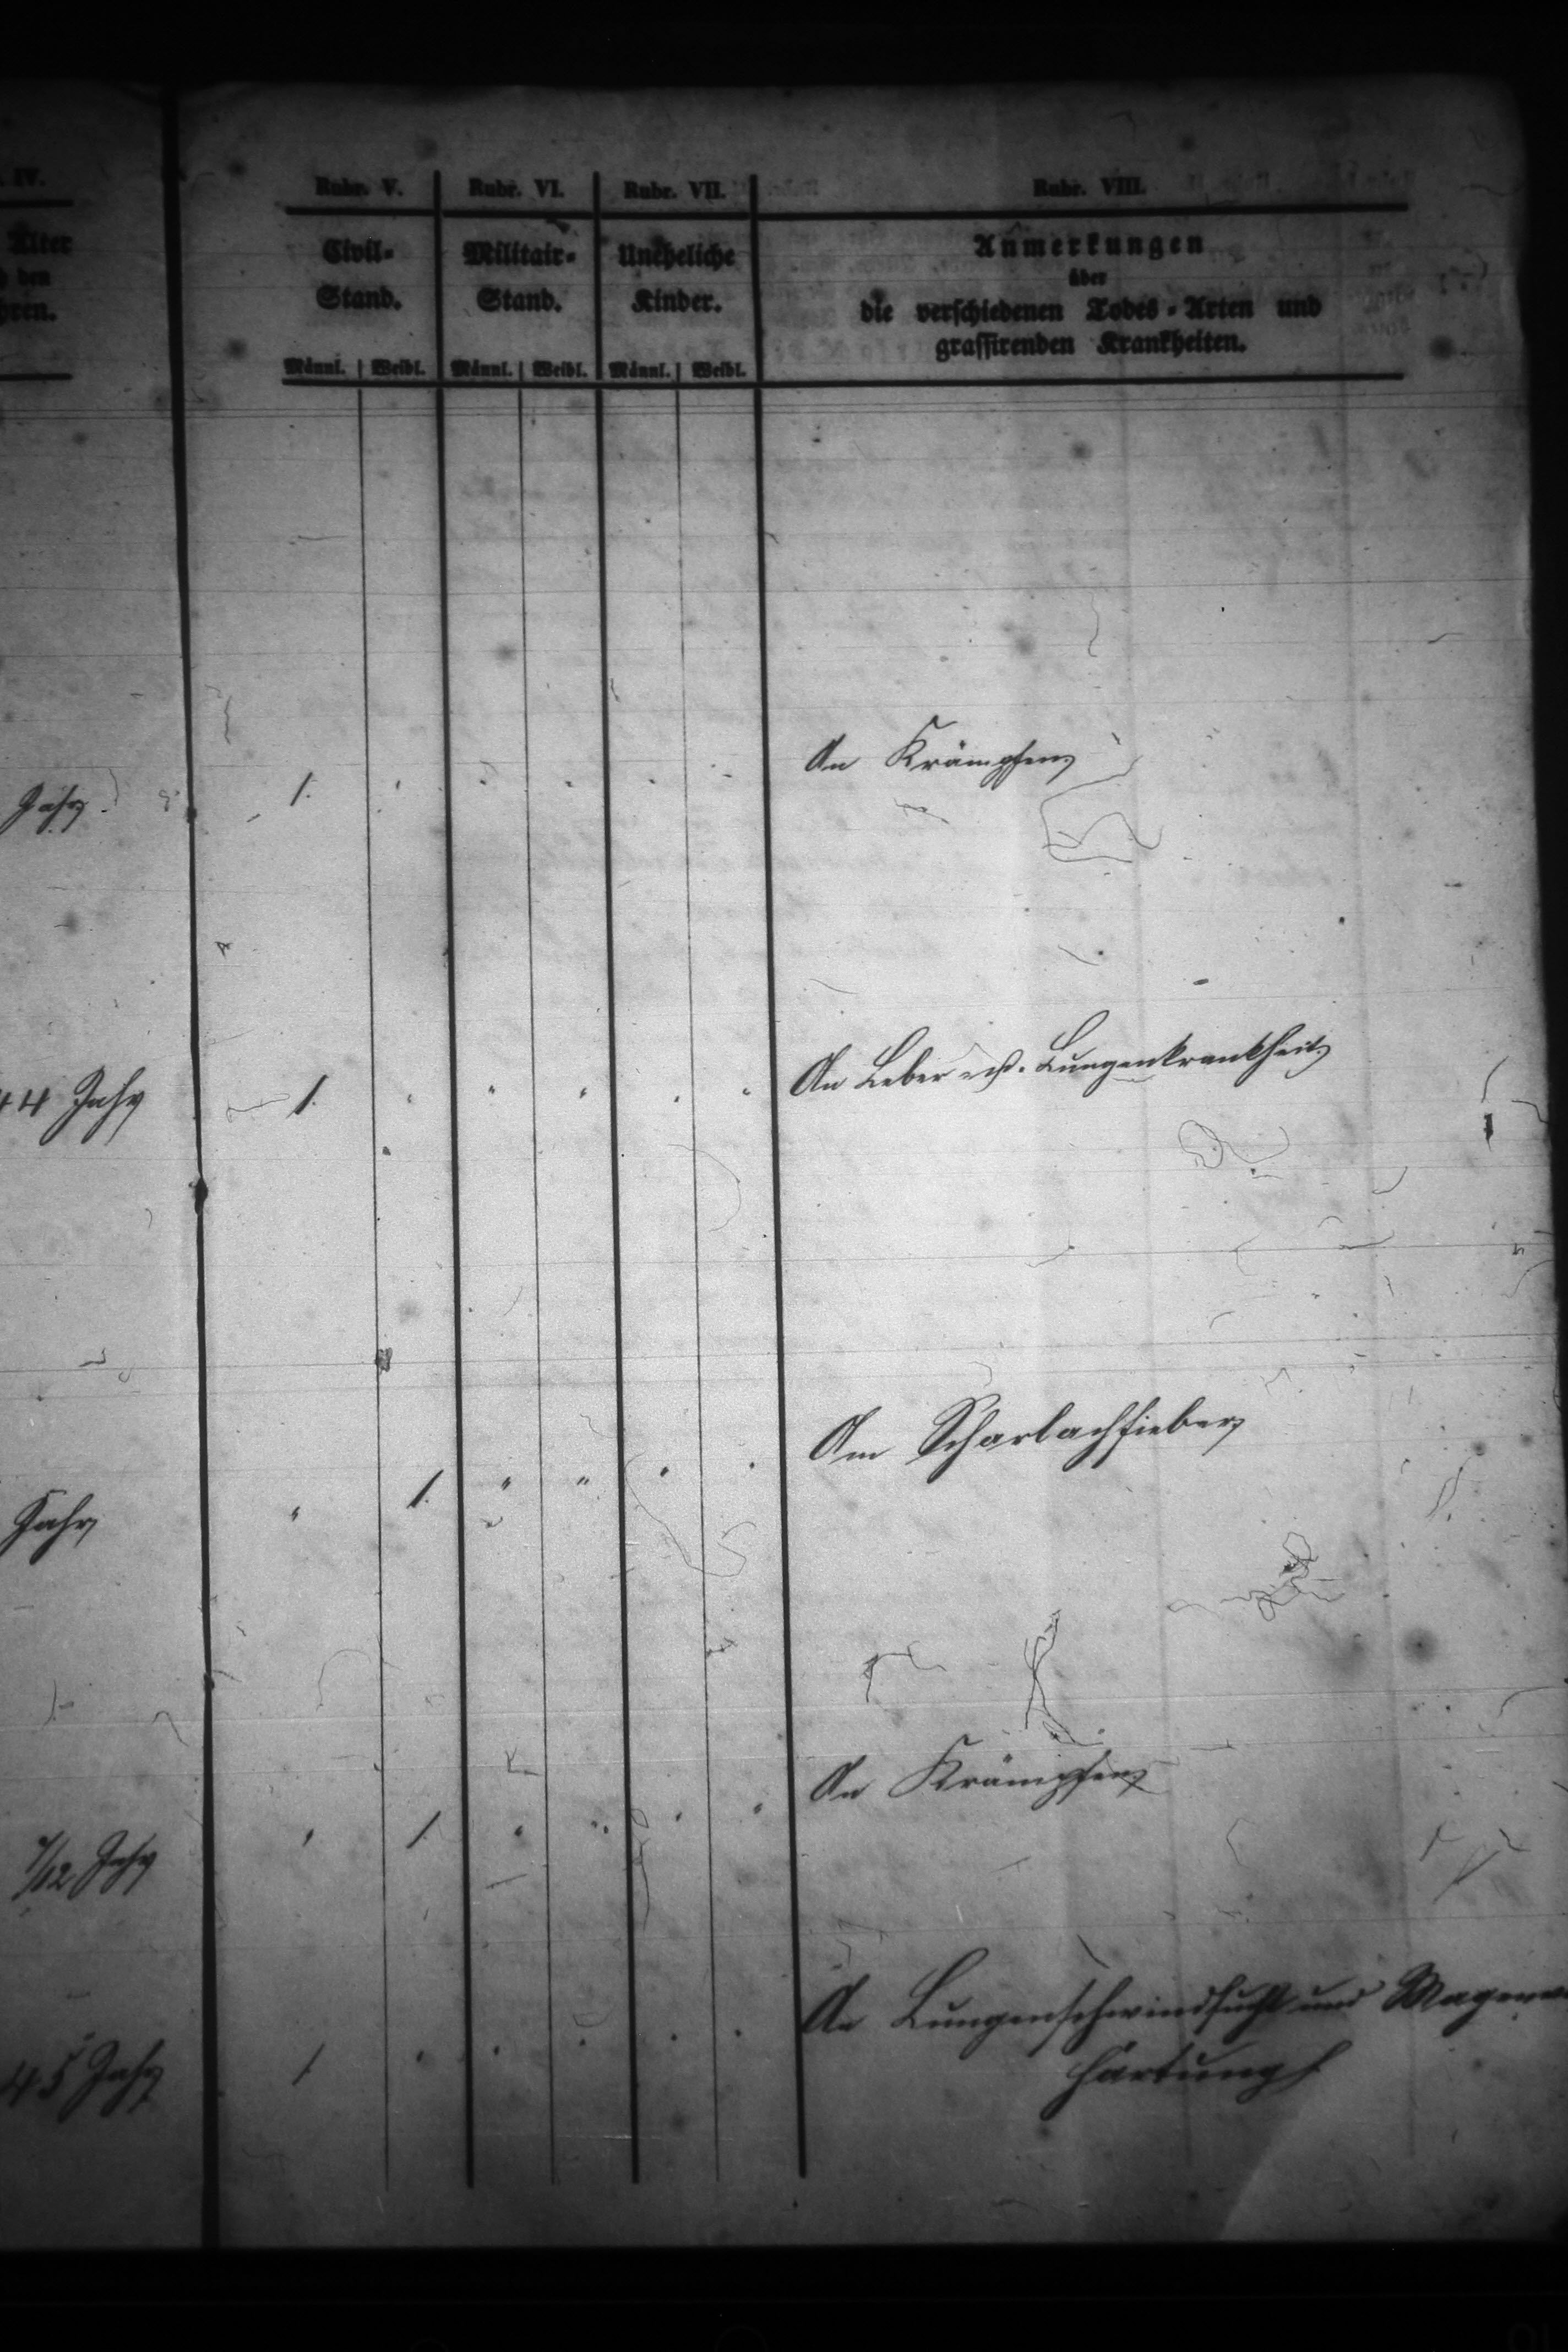 IV. Rubr. V. Rubr. VI. Rubr. VII. Rubr. VIII.
Alter Civil- Militair- Uneheliche Anmerkungen
den Stand. Stand. Kinder. über
hren. die verschiedenen Todes-Arten und
grassirenden Krankheiten.
Männl. Weibl. Männl. Weibl. Männl. Weibl.
An Krämpfen
Jahr 1.
44 Jahr 1. An Leber u. Lungenkrankheit
Am Scharlachfieber
Jahr " 1. " "
An Krämpfen
/12 Jahr 1
An Lungenschwindsucht und Magenver
45 Jahr 1 härtung